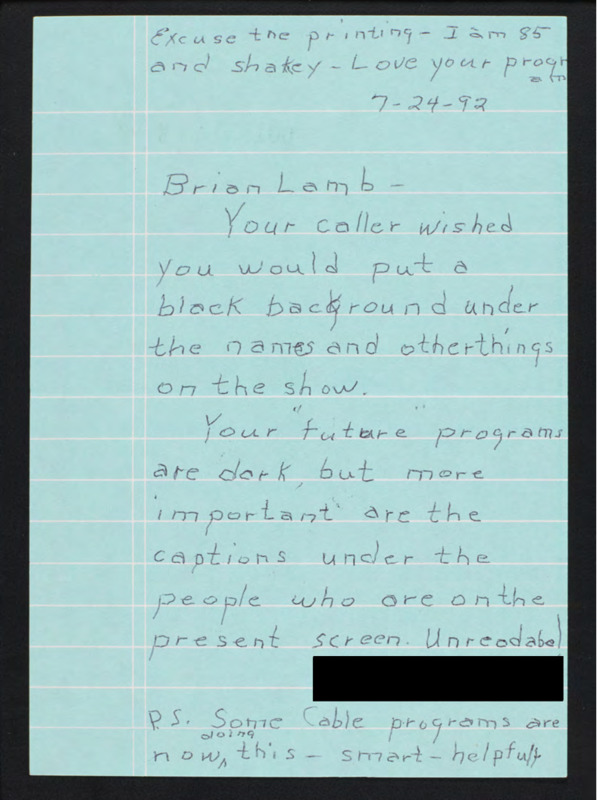 Excuse the printing - I am 85
and shakey - Love your progr
am
7-24-92
Brian Lamb -
Your caller wished
you would put a
black background under
the names and otherthings
on the show.
Your "future" programs
are dark, but more
important are the
captions under the
people who are on the
present screen. Unreadabel
P.S. Some Cable programs are
doing
now, this - smart - helpful